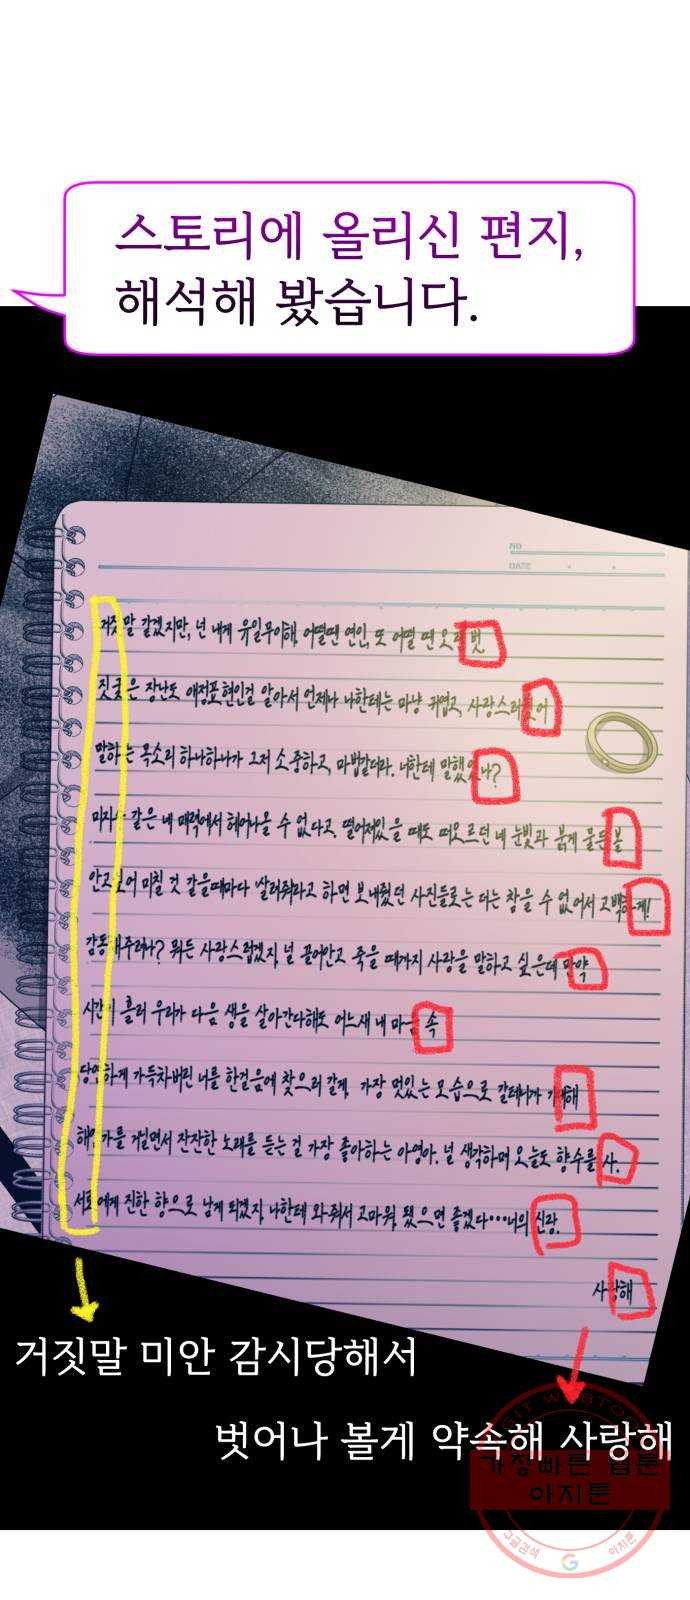 스토리에 올리신 편지,
해석해 봤습니다.
NO
DATE
거짓말 같겠지만, 넌 내게 유일무이해. 어떨땐 연인, 또 어떨 땐 오랜 벗
짓궂은 장난도 애정표현인걸 알아서 언제나 나한테는 마냥 귀엽고, 사랑스러웠어
말하는 목소리 하나하나가 그저 소중하고, 마법같더라. 너한테 말했었나?
같은 네 매력에서 헤어나올 수 없다고. 떨어져있을 때도 떠오르던 네 눈빛과 붉게 물든 볼
안고싶어 미칠 것 같을때마다 살려줘라고 하면 보내줬던 사진들로는 더는 참을 수 없어서 고백할게!
감동해주려나? 뭐든 사랑스럽겠지. 널 끌어안고 죽을 때까지 사랑을 말하고 싶은데 만약
시간이 흘러 우리가 다음 생을 살아간다해도 어느새 내 마음 속
당연하게 가득차버린 너를 한걸음에 찾으러 갈게. 가장 멋있는 모습으로 갈테니까 기대해
해안가를 거닐면서 잔잔한 노래를 듣는 걸 가장 좋아하는 아영아. 널 생각하며 오늘도 향수를 사.
서로에게 진한 향으로 남게 되겠지. 나한테 와줘서 고마워. 됐으면 좋겠다…너의 신랑.
사랑해
거짓말 미안 감시당해서
벗어나 볼게 약속해 사랑해
가장빠른 웹툰
아지툰
구글검색
아지툰